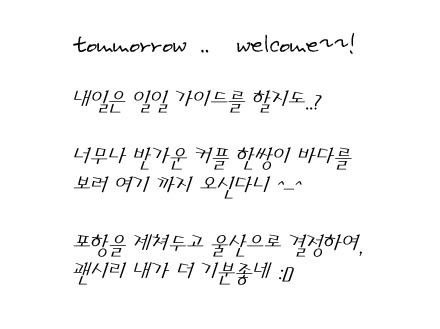 tommorrow .. welcome~~!
내일은 일일 가이드를 할지도..?
너무나 반가운 커플 한쌍이 바다를
보러 여기 까지 오신다니 ^-^
포항을 제쳐두고 울산으로 결정하여,
괜시리 내가 더 기분좋네 :D